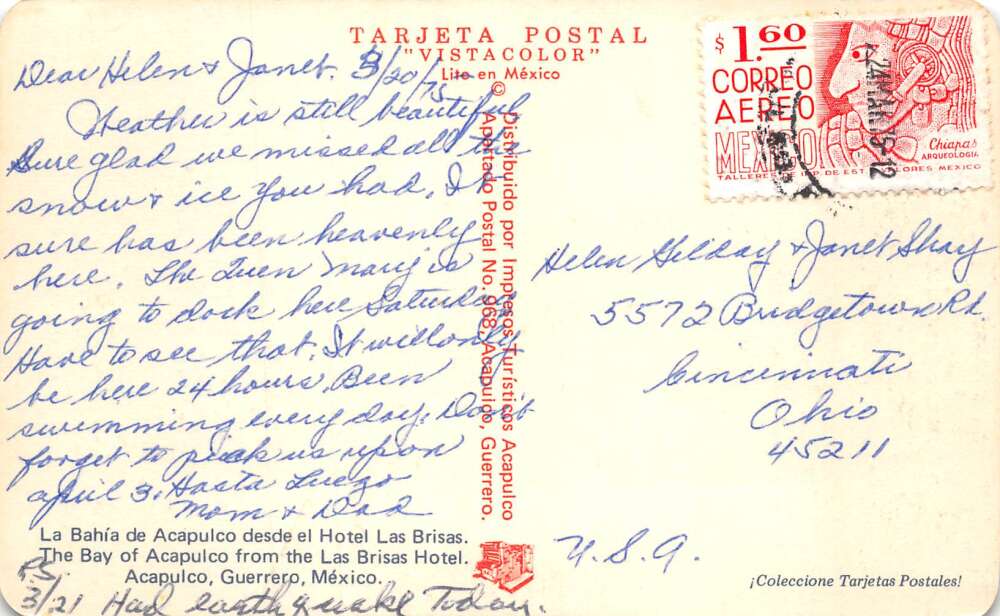 TARJETA POSTAL
"VISTACOLOR"
Lito en México
©
Dear Helen & Janet. 3/20/75
Weather is still beautiful
Sure glad we missed all the
snow & ice you had. It
sure has been heavenly
here. The Queen Mary is
going to dock here Saturday
Have to see that. It will only
be here 24 hours. Been
swimming every day. Don't
forget to pick us up on
april 3. Hasta Luego
Mom & Dad
La Bahía de Acapulco desde el Hotel Las Brisas.
The Bay of Acapulco from the Las Brisas Hotel.
Acapulco, Guerrero, México.
P.S.
3/21 Had earthquake Today.
Distribuido por Impresos Turísticos Acapulco
Apartado Postal No. 968, Acapulco, Guerrero.
$1.60
CORREO
AEREO
MEXICO
Chiapas
ARQUEOLOGIA
TALLERES DE IMP. DE EST. Y VALORES-MEXICO
Helen Gilday & Janet Shay
5572 Bridgetown Rd.
Cincinnati
Ohio
45211
U.S.A.
¡Coleccione Tarjetas Postales!